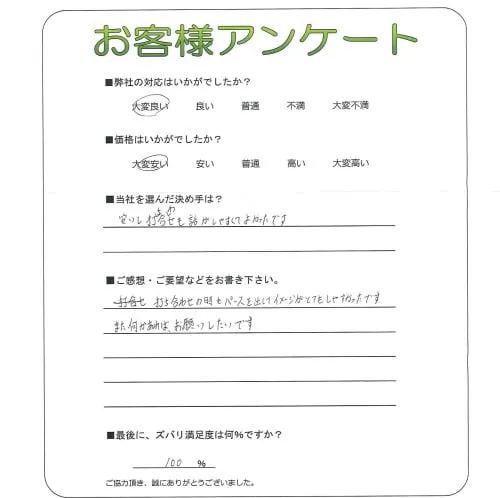 お客様アンケート
■弊社の対応はいかがでしたか？
大変良い 良い 普通 不満 大変不満
■価格はいかがでしたか？
大変安い 安い 普通 高い 大変高い
■当社を選んだ決め手は？
安いし打合せも話がしやすくてよかったです
■ご感想・ご要望などをお書き下さい。
打ち合わせの時もパースを出してイメージがとてもしやすかったです
また何かあれば、お願いしたいです
■最後に、ズバリ満足度は何％ですか？
100 %
ご協力頂き、誠にありがとうございました。